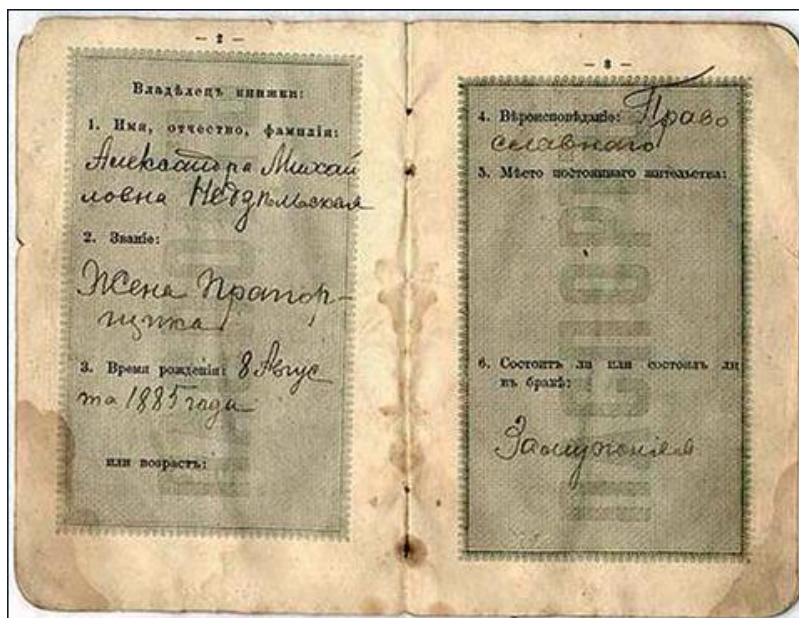 — 2 —
Владѣлецъ книжки:
1. Имя, отчество, фамилія:
Александра Михай
ловна
2. Званіе:
Жена Прапор-
щика
3. Время рожденія: 8 Авгус
та 1885 года
или возрастъ:
— 3 —
4. Вѣроисповѣданіе: Право
славнаго
5. Мѣсто постояннаго жительства:
6. Состоитъ ли или состоялъ ли
въ бракѣ:
Замужняя